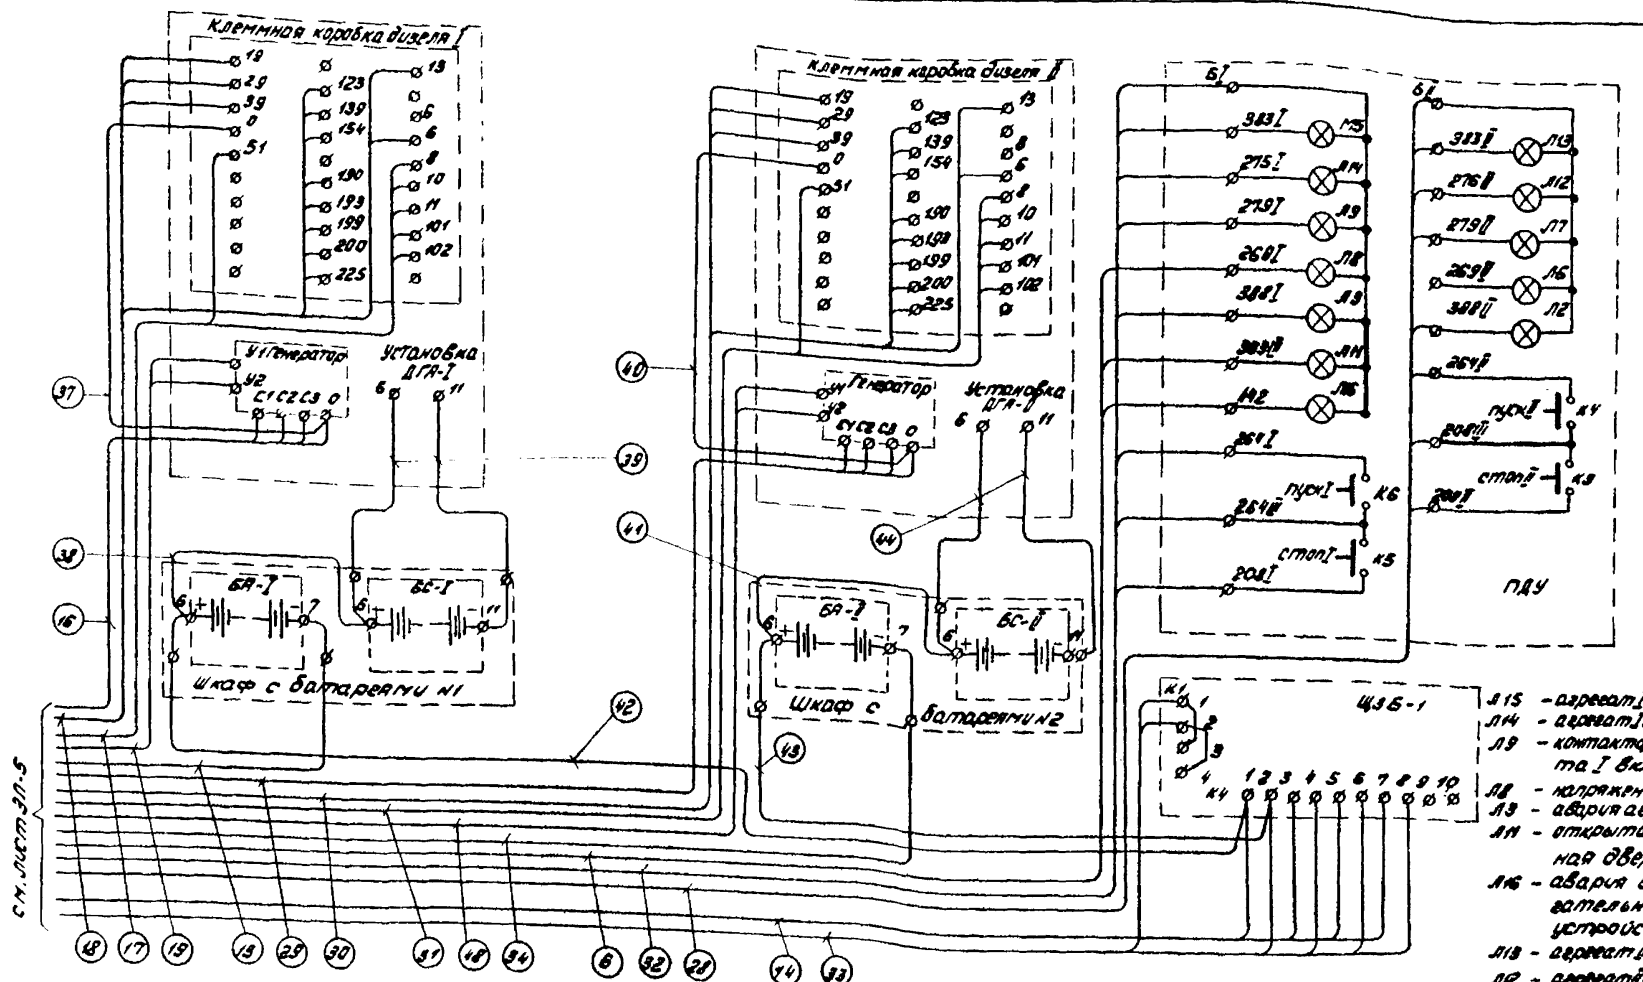 Клеммная коробка дизеля I
19
29
39
0
51
123
139
154
190
193
199
200
225
13
6
6
8
10
11
101
102
У1 Генератор
У2
С1 С2 С3 0
Установка
ДГА-I
6
11
БА-I
6
+
-
7
БС-I
6
+
-
11
Шкаф с батареями N1
Клеммная коробка дизеля II
19
29
39
0
51
123
139
154
190
193
199
200
225
13
8
6
8
10
11
101
102
У1 Генератор
У2
С1 С2 С3 0
Установка
ДГА-II
6
11
БА-II
6
+
-
7
БС-II
6
+
-
11
Шкаф с батареями N2
БI
383I
275I
Л14
279I
Л9
268I
Л8
388I
Л3
Л11
142
Л16
264I
пуск I
К6
стоп I
К5
208I
БII
383II
Л13
276II
Л12
279II
Л7
269II
Л6
388II
Л2
264II
пуск II
К4
стоп II
К3
ПДУ
ЩЗБ-1
К1
1
2
3
4
К4
1 2 3 4 5 6 7 8 9 10
Л15 - агрегат I
Л14 - агрегат I
Л9 - контакто
та I вк
Л8 - напряжен
Л3 - авария ав
Л11 - открыта
ная двер
Л16 - авария
гательн
устройс
Л13 - агрегат
37
38
16
39
40
41
44
42
43
см. лист ЭЛ-5
18
17
19
15
29
30
31
48
34
6
32
28
14
33